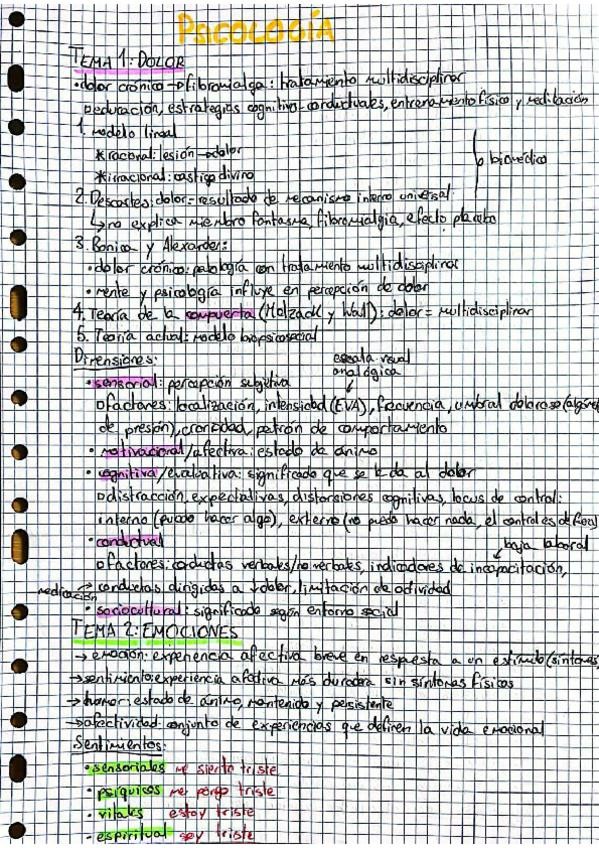 PSICOLOGÍA
TEMA 1: DOLOR
• dolor crónico → fibromialga: tratamiento multidisciplinar
educación, estrategias cognitivo-conductuales, entrenamiento físico y medicación
1. modelo lineal
* racional: lesión → dolor
* irracional: castigo divino
biomédico
2. Descartes: dolor = resultado de mecanismo interno universal.
↳ no explica miembro fantasma, fibromialgia, efecto placebo
3. Bonica y Alexander:
• dolor crónico: patología con tratamiento multidisciplinar
• mente y psicología influye en percepción de dolor
4. Teoría de la compuerta (Melzack y Wall): dolor = multidisciplinar
5. Teoría actual: modelo biopsicosocial
Dimensiones:
escala visual
analógica
• sensorial: percepción subjetiva
factores: localización, intensidad (EVA), frecuencia, umbral doloroso (algómetro
de presión), cronicidad, patrón de comportamiento
• motivacional/afectiva: estado de ánimo
• cognitiva/evaluativa: significado que se le da al dolor
distracción, expectativas, distorsiones cognitivas, locus de control:
interno (puedo hacer algo), externo (no puedo hacer nada, el control es de fuera)
• conductual
baja laboral
factores: conductas verbales/no verbales, indicadores de incapacitación,
medicación
conductas dirigidas a ↓ dolor, limitación de actividad
• sociocultural: significado según entorno social
TEMA 2: EMOCIONES
→ emoción: experiencia afectiva breve en respuesta a un estímulo (síntomas)
→ sentimiento: experiencia afectiva más duradera sin síntomas físicos
→ humor: estado de ánimo, mantenido y persistente
→ afectividad: conjunto de experiencias que definen la vida emocional
Sentimientos:
• sensoriales me siento triste
• psíquicos me pongo triste
• vitales estoy triste
• espiritual soy triste